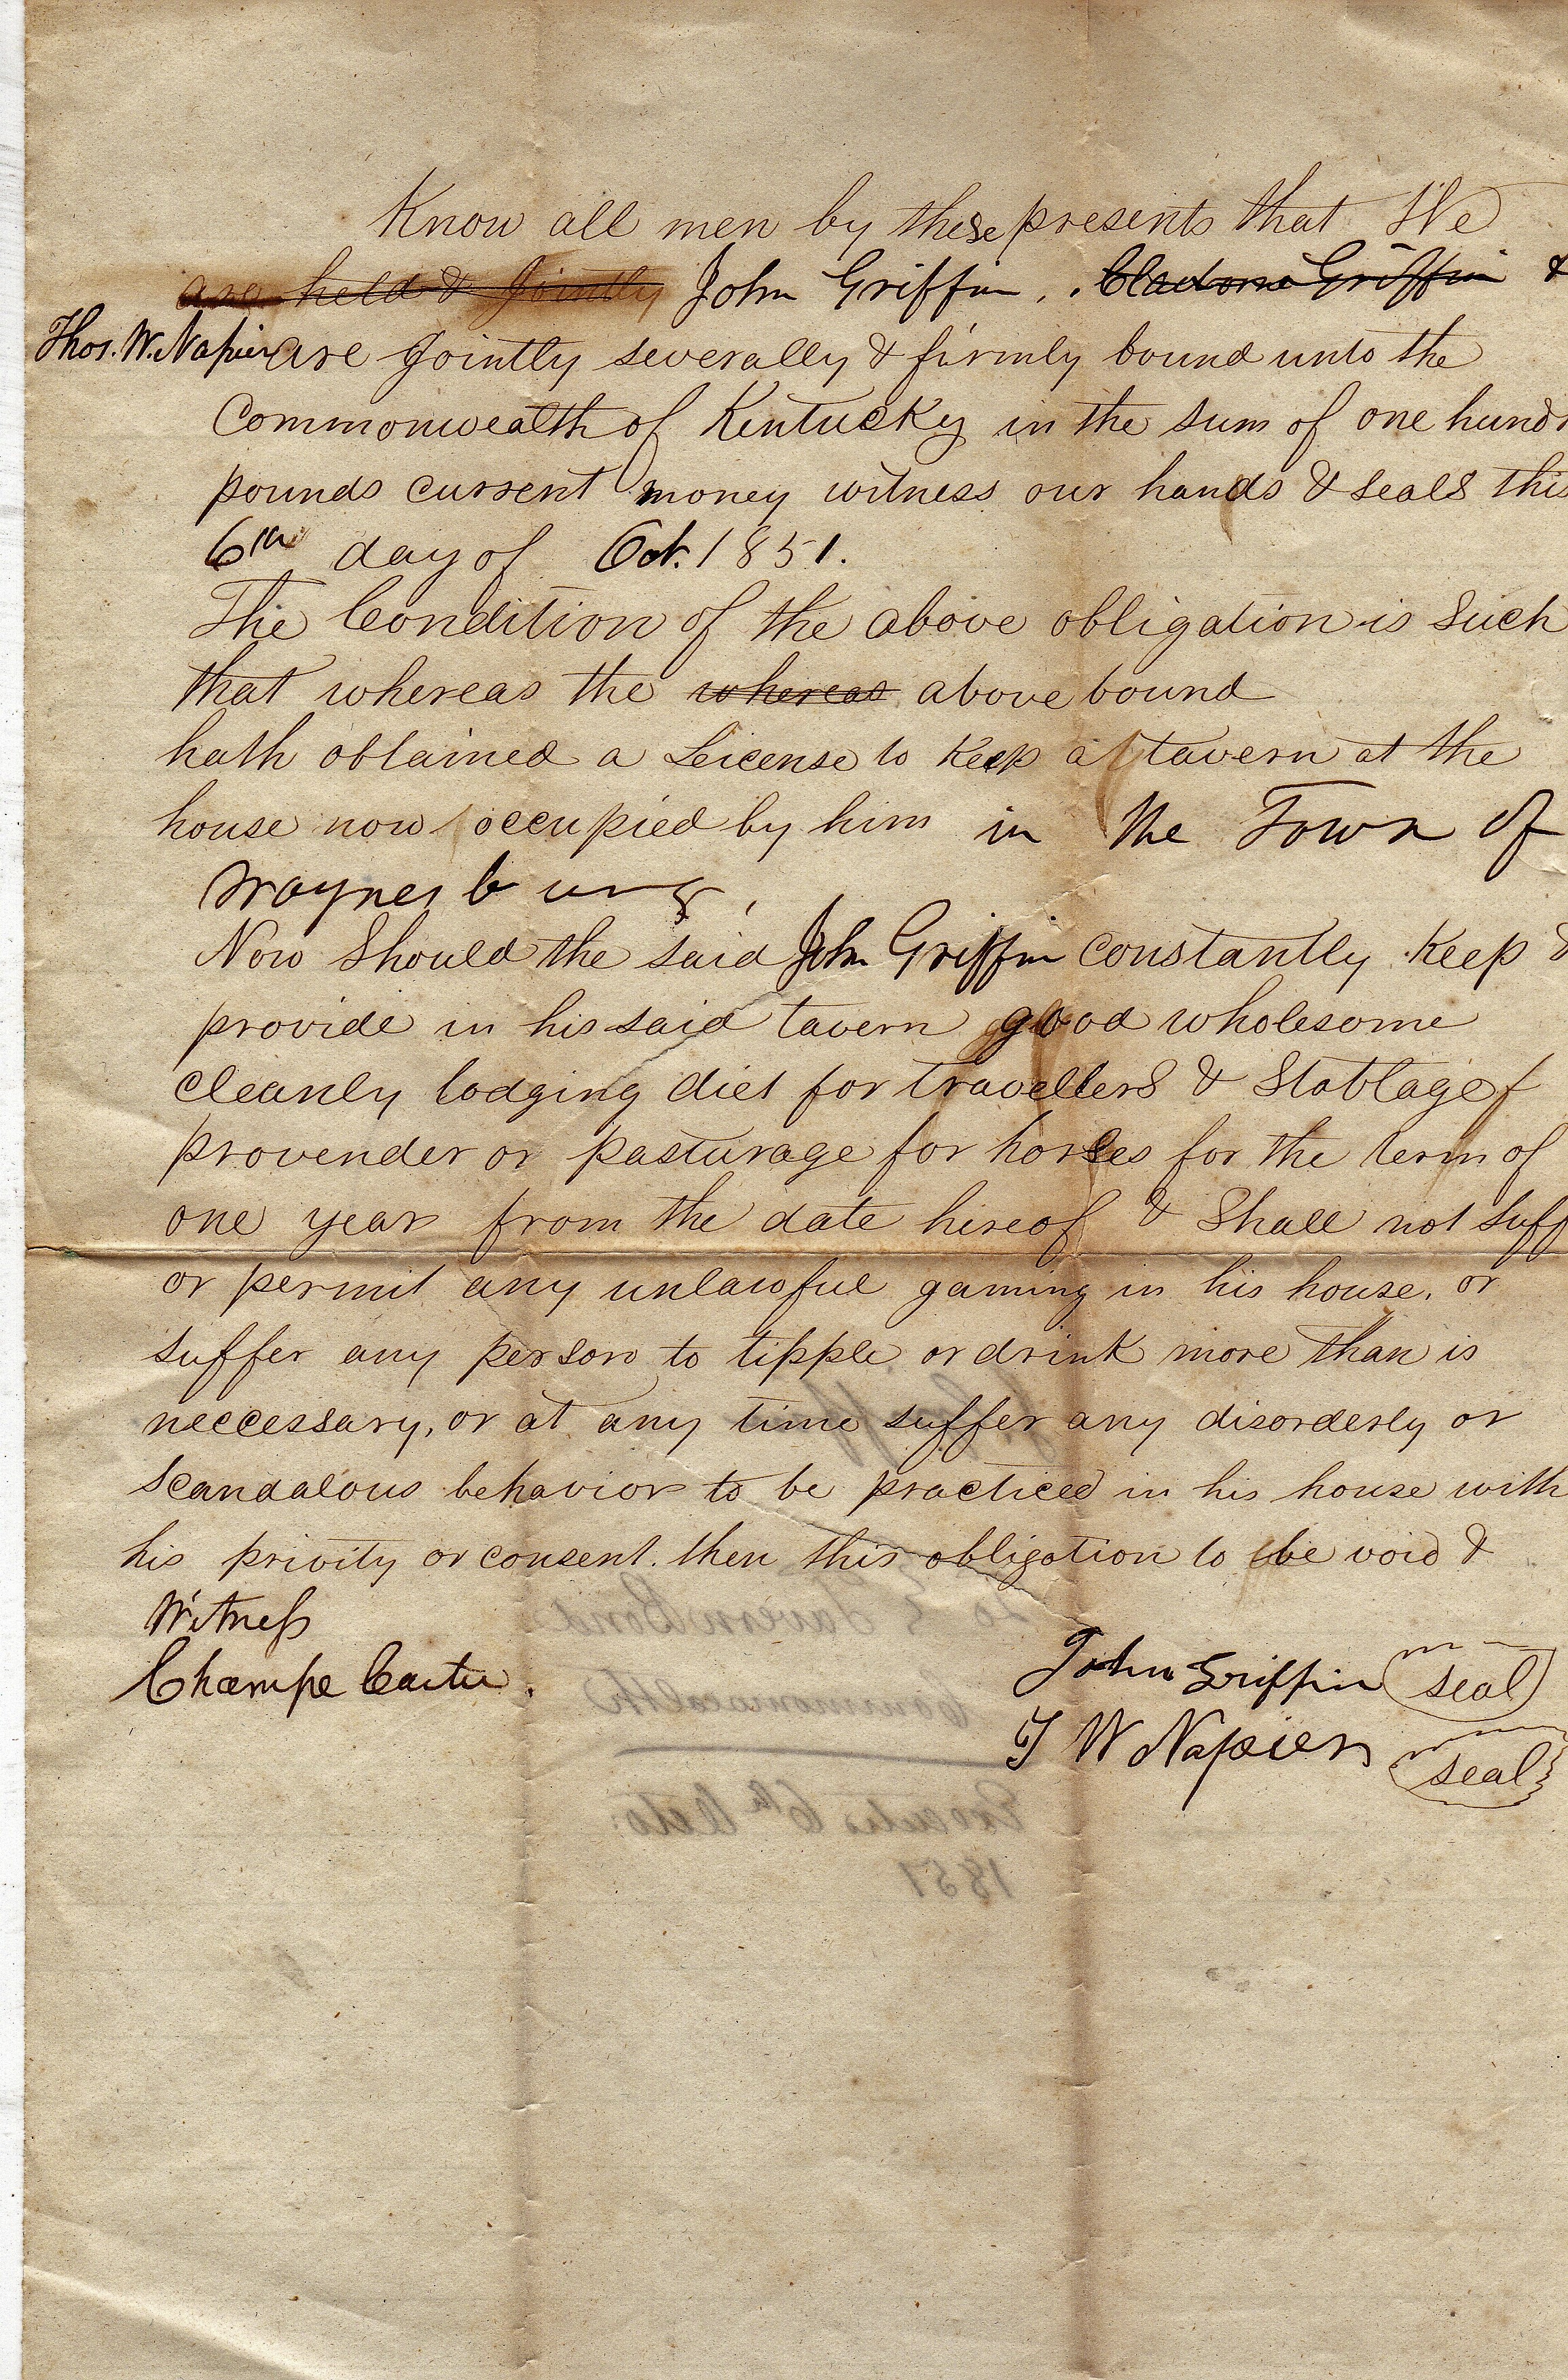 Know all men by these presents that We
are held & Jointly John Griffin, Griffin &
Thos. W. Napier are Jointly severally & firmly bound unto the
Commonwealth of Kentucky in the sum of one hundr
pounds current money witness our hands & seals this
6th day of Oct. 1851.
The Condition of the above obligation is such
that whereas the whereas above bound
hath obtained a License to Keep a tavern at the
house now occupied by him in the Town of
Waynesburg,
Now Should the said John Griffin constantly Keep &
provide in his said tavern good wholesome
cleanly lodging diet for travellers & Stablage
provender or pasturage for horses for the term of
one year from the date hereof & Shall not suff
or permit any unlawful gaming in his house, or
suffer any person to tipple or drink more than is
neccessary, or at any time suffer any disorderly or
scandalous behavior to be practiced in his house with
his privity or consent. then this obligation to be void &
Witness
Champe Carter.
John Griffin seal
T W Napier seal
Tavern Bond
Commonwealth
6th Octo:
1851